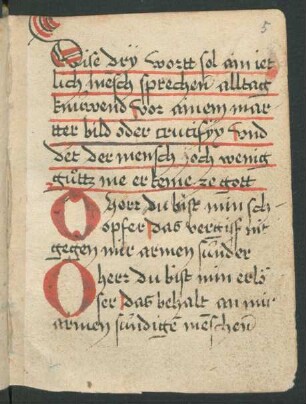 5
Dise dry wortt sol ain iet
lich mēsch sprechen alltag
knuwend vor ainem mar
tter bild oder crucifix vnd
det der mensch joch wenig
gůttz nie er keine ze gott
O herr du bist min sch
opfer das vergiss nit
gegen mir armen sünder
O herr du bist min erlö
ser das behalt an mir
armen sündigē mēschen